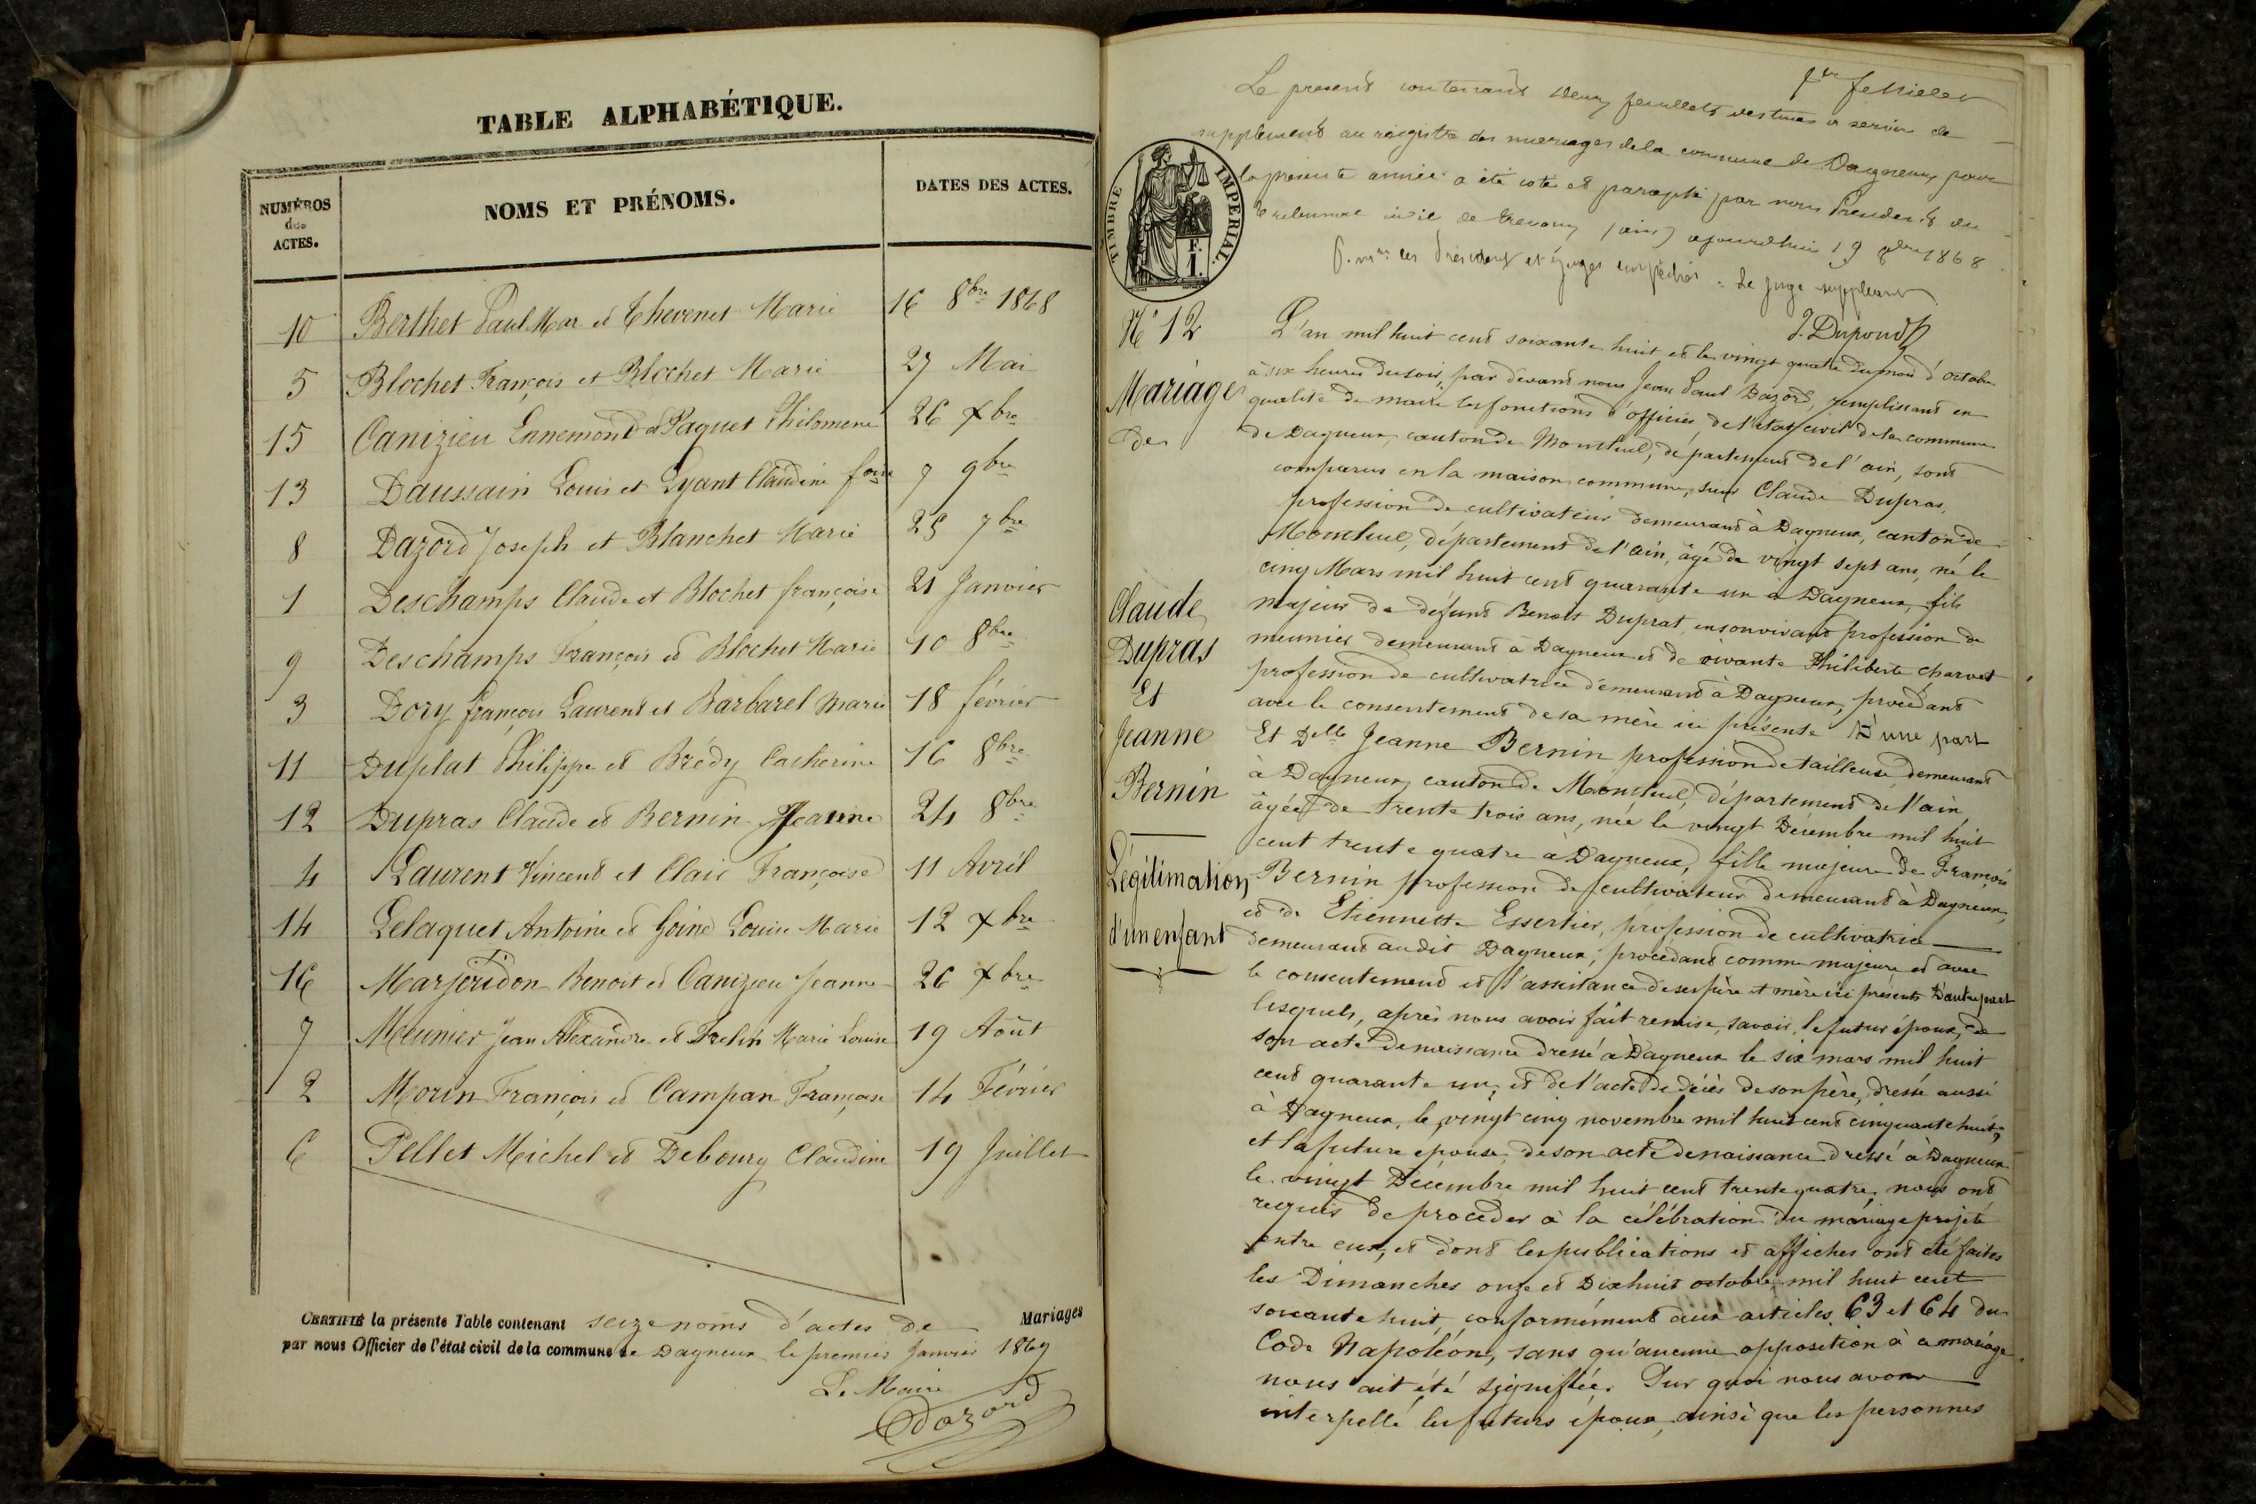 TABLE ALPHABÉTIQUE.
NUMÉROS
des
ACTES.
NOMS ET PRÉNOMS.
DATES DES ACTES.
10 Berthet Paul Mar et Thevenet Marie 16 8bre 1868
5 Blochet François et Blochet Marie 27 Mai
15 Canizieu Ennemond et Paquet Philomene 26 xbre
13 Daussain Louis et Lyant Claudine 7 9bre
8 Dazord Joseph et Blanchet Marie 25 7bre
1 Deschamps Claude et Blochet françoise 21 Janvier
9 Deschamps François et Blochet Marie 10 8bre
3 Dory françois Laurent et Barbarel Marie 18 février
11 Duplat Philippe et Brédy Catherine 16 8bre
12 Dupras Claude et Bernin Jeanne 24 8bre
4 Laurent Vincent et Clair Françoise 11 Avril
14 Lelaquet Antoine et Goine Louise Marie 12 xbre
16 Marjoridon Benoit et Canizieu Jeanne 26 xbre
7 Meunier Jean Alexandre et Marie Louise 19 Août
2 Morin François et Campan Françoise 14 Février
6 Pellet Michel et Deboury Claudine 19 Juillet
CERTIFIÉ la présente Table contenant seize noms d'actes de Mariages
par nous Officier de l'état civil de la commune de Dagneux le premier Janvier 1869
Le Maire
Dazord
1er feuillet
Le present contenant deux feuillets destinés a servir de
supplement au régistre des mariages de la commune de Dagneux pour
la présente année a été coté et paraphé par nous President du
tribunal civil de trevoux (ain) ajourdhui 19 8bre 1868
P. mrs les Présidents et Juges empêchés : le juge suppleant
J. Dupond
TIMBRE IMPÉRIAL.
F.
I.
N° 12
Mariage
de
Claude
Dupras
Et
Jeanne
Bernin
Légitimation
d'un enfant
L'an mil huit cent soixante huit et le vingt quatre du mois d'octobre
à six heures du soir, par devant nous Jean Paul Dazord, remplissant en
qualité de maire les fonctions d'officier de l'état civil de la commune
de Dagneux canton de Montluel, département de l'ain, sont
comparus en la maison commune, sieur Claude Dupras,
profession de cultivateur demeurant à Dagneux, canton de
Montluel, département de l'ain, âgé de vingt sept ans, né le
cinq Mars mil huit cent quarante un à Dagneux, fils
majeur de défunt Benoit Duprat, en son vivant profession de
meunier demeurant à Dagneux et de vivante Philiberte Charvet
profession de cultivatrice demeurant à Dagneux, procédant
avec le consentement de sa mère ici présente D'une part
Et Delle Jeanne Bernin profession de tailleuse demeurant
à Dagneux canton de Montluel, département de l'ain
âgée de trente trois ans, née le vingt Décembre mil huit
cent trente quatre à Dagneux, fille majeure de François
Bernin profession de cultivateur demeurant à Dagneux,
et de Etiennette Essertier, profession de cultivatrice
demeurant audit Dagneux, procédant comme majeure et avec
le consentement et l'assistance de ses père et mère ici présents D'autre part
lesquels, après nous avoir fait remise, savoir, le futur époux, de
son acte de naissance dressé à Dagneux le six mars mil huit
cent quarante un, et de l'acte de décès de son père, dressé aussi
à Dagneux, le vingt cinq novembre mil huit cent cinquante huit,
et la future épouse, de son acte de naissance dressé à Dagneux
le vingt Décembre mil huit cent trente quatre, nous ont
requis de procéder à la célébration du mariage projeté
entre eux, et dont les publications et affiches ont été faites
les Dimanches onze et Dix huit octobre mil huit cent
soixante huit, conformément aux articles 63 et 64 du
Code Napoléon, sans qu'aucune opposition à ce mariage
nous ait été signifiée. Sur quoi nous avons
interpellé les futurs époux, ainsi que les personnes